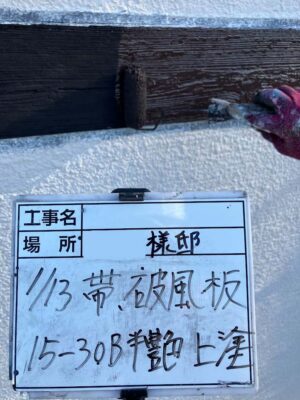 工事名
場所 様邸
1/13 帯、破風板
15-30B半艶上塗